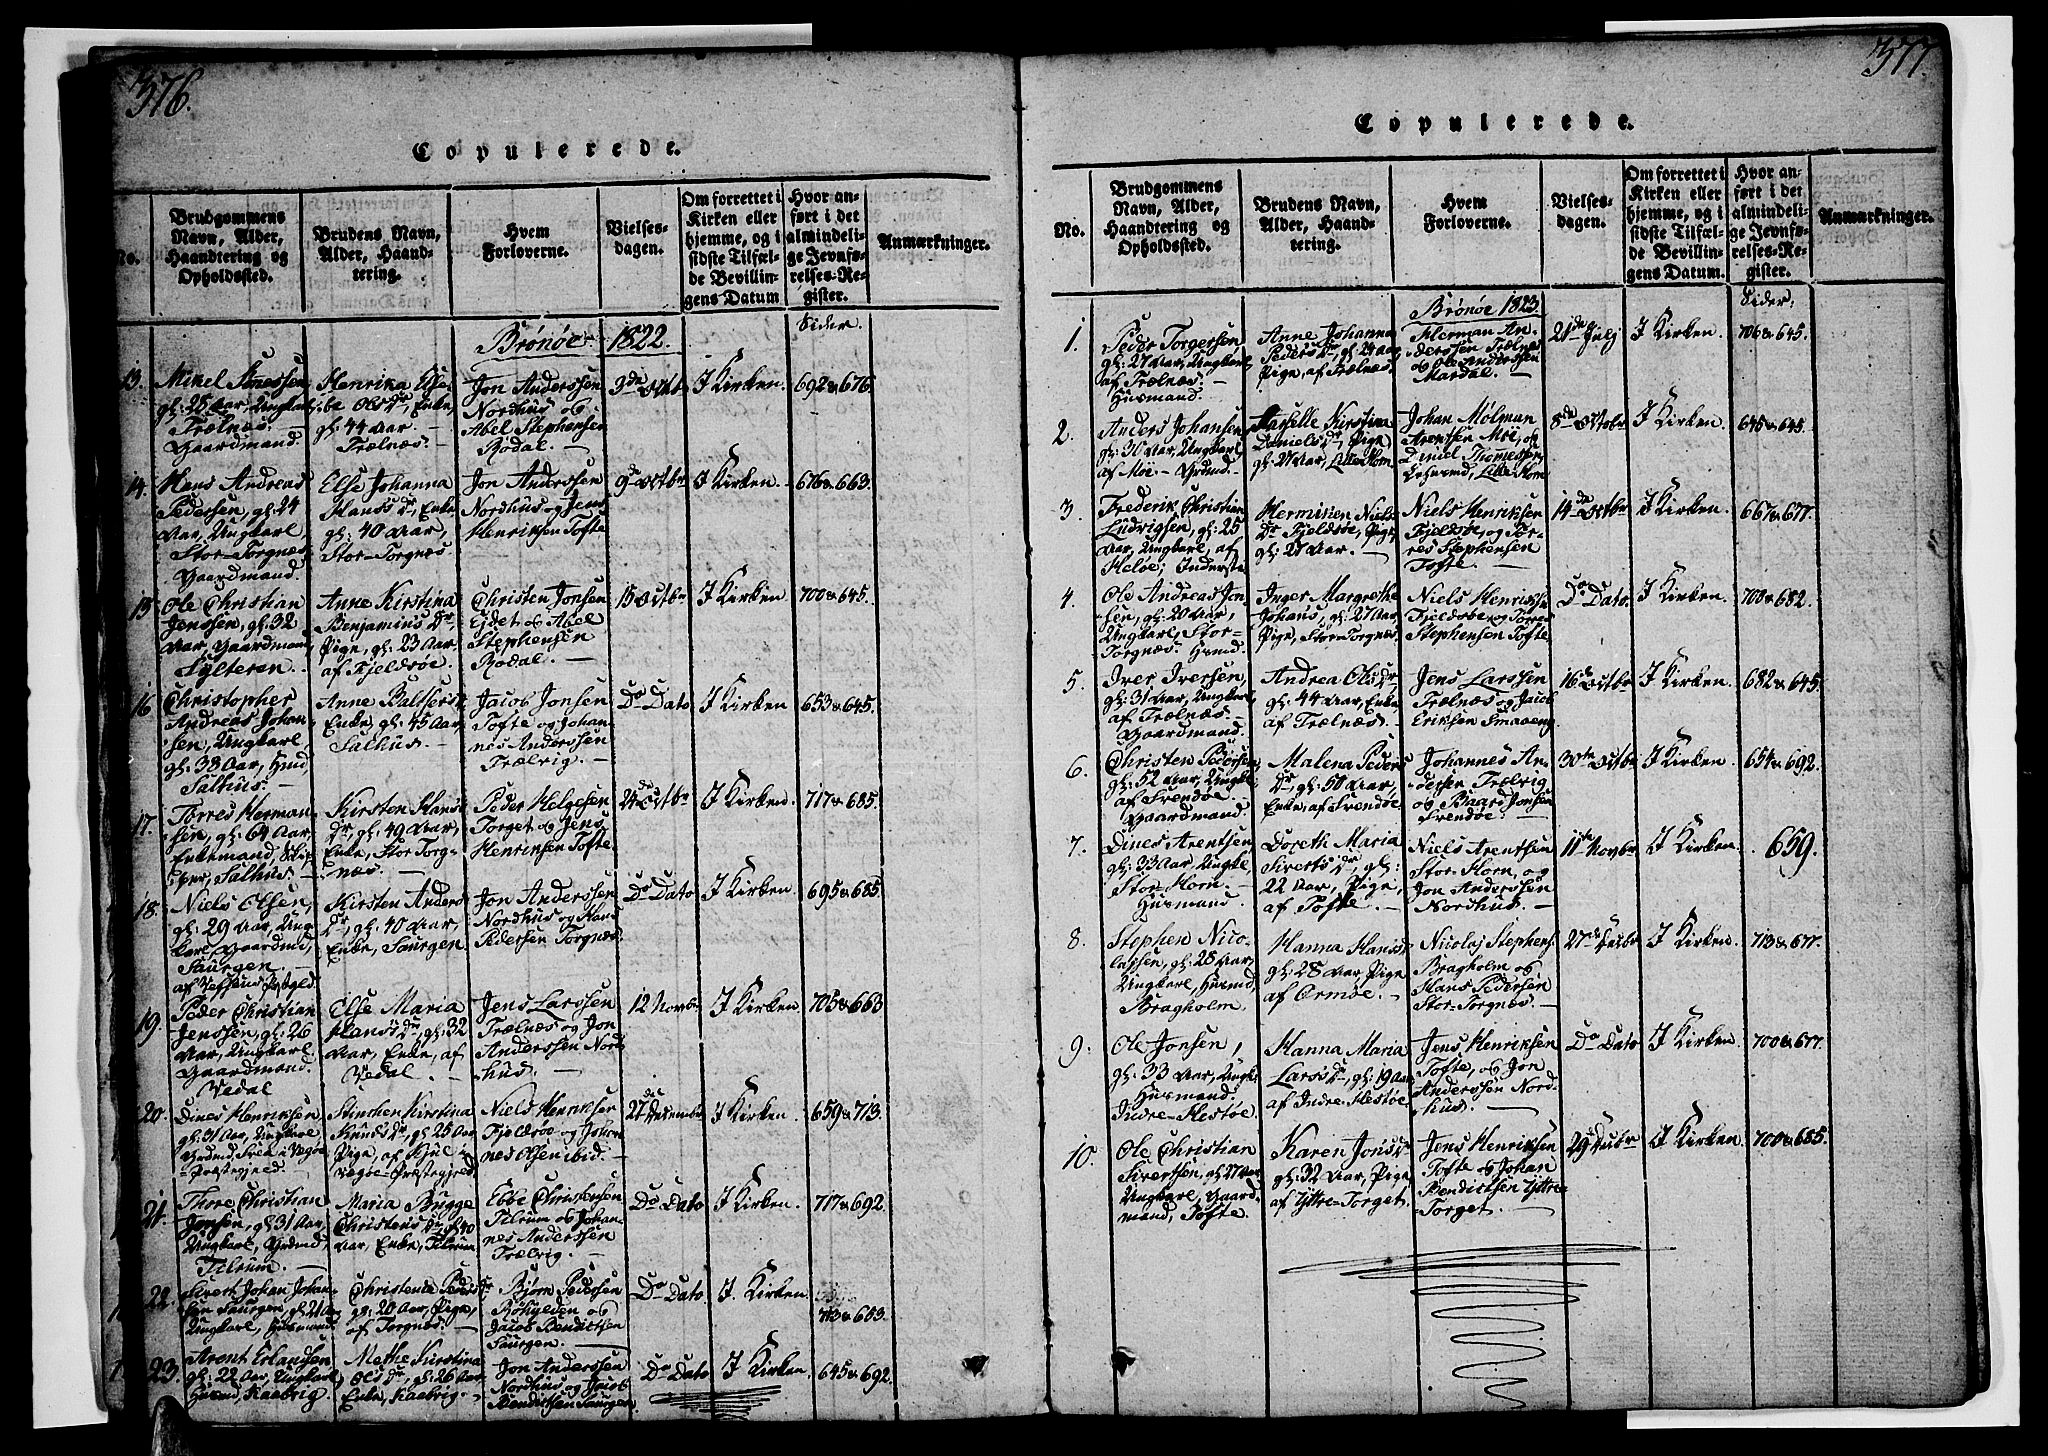 376.
Copulerede.
No.
Brudgommens
Navn, Alder,
Haandtering og
Opholdssted.
Brudens Navn,
Alder, Haand-
tering.
Hvem
Forloverne.
Vielses-
dagen.
Om forrettet i
Kirken eller
hjemme, og i
sidste Tilfæl-
de Bevillin-
gens Datum
Hvor an-
ført i det
almindeli-
ge Jevnfø-
relses-Re-
gister.
Anmærkninger.
Brønøe 1822.
Sider.
13.
Mikel
gl: 28 Aar, Ungkarl
Trælnæs. —
Gaardmand.
Henrika Else-
be Olsdr, Enke,
gl: 44 Aar.
Trælnæs. —
Jon Anderssen
Nordhus og
Abel Stephensen
Rodal. —
3de Octbr
I Kirken.
692 & 676.
14.
Hans Andreas
Pedersen, gl: 24
Aar, Ungkarl,
Stor-Torgnæs
Gaardmand.
Else Johanna
Hansdr, Enke
gl: 40 Aar,
Stor-Torgnæs
Jon Anderssen
Nordhus og Jens
Henriksen Tofte
9de Octbr
I Kirken.
676 & 663.
15
Ole Christian
Jenssen, gl: 32
Aar, Gaardmand
Sylteren. —
Anne Kirstina
Benjaminsdr
Pige, gl: 23 Aar
af Fjeldsøe.
Christen Jonsen
Eidet og Abel
Stephensen
Rodal. —
15 Octbr
I Kirken
700 & 645.
16
Christopher
Andreas Johan-
sen, Ungkarl
gl: 38 Aar, Hmd
Salhus. —
Anne Baltsersdr
Enke, gl: 45 Aar,
Salhus. —
Jacob Jonsen
Tofte og Johan-
nes Anderssen
Trælvig. —
Do Dato
I Kirken
653 & 645.
17.
Torres Herman-
sen, gl: 64 Aar,
Enkemand, Skip-
per, Salhus. —
Kirsten Hans-
dr, gl: 49 Aar,
Enke, Stor Torg-
næs. —
Peder Helgesen
Torget og Jens
Henriksen Tofte.
24de Octbr
I Kirken.
717 & 685.
18.
Niels Olsen,
gl: 29 Aar, Ung-
karl, Gaardmd,
Saurgen. —
af Vefsens Præstegld.
Kirsten Anders-
dr, gl: 40 Aar,
Enke, Saurgen
Jon Anderssen
Nordhus og Hans
Pedersen Torgnæs.
Do Dato
I Kirken
695 & 685.
19.
Peder Christian
Jenssen, gl: 26
Aar, Ungkarl.
Gaardmand.
Vedal
Else Maria
Hansdr, gl: 32
Aar, Enke, af
Vedal. —
Jens Larssen
Trælnæs og Jon
Anderssen Nord-
hus. —
12 Novbr
I Kirken
705 & 663
20.
Dines Henriksen
gl: 31 Aar, Ungkarl
i Vegøe
Præstegjeld.
Stinchen Kirstina
Knudsdr, gl: 25 Aar
Pige, af i
Vegøe-Præstegjeld.
Niels Henriksen
Fjeldsøe og Johan-
nes Olsen ibid. —
27de December
I Kirken
659 & 713.
21.
Thore Christian
Jonsen, gl: 31 Aar,
Ungkarl, Grdmd,
Tilrum. —
Maria Brygge
Christensdr, gl: 40
Aar, Enke, Tilrum.
Ebbe Christensen
Tilrum og Johan-
nes Anderssen
Trælvig. —
Do Dato
I Kirken.
717 & 692.
22.
Sivert Johan Johan-
sen Saurgen, gl: 21 Aar
Ungkarl, Husmand
Christense Pedersdr
gl: 20 Aar, Pige,
af Torgnæs. —
Bjørn Pedersen
og
Jacob Bendictsen
Saurgen. —
Do Dato.
I Kirken.
713 & 653.
23.
Arent Erlandsen
gl: 22 Aar, Ungkarl,
Husmd, Kaalvig
Methe Kirstina
Olsdr, gl: 26 Aar,
Enke, Kaalvig. —
Jon Anderssen
Nordhus og Jacob
Bendictsen Saurgen
Do Dato
I Kirken.
645 & 692.
377.
Copulerede.
No.
Brudgommens
Navn, Alder,
Haandtering og
Opholdssted.
Brudens Navn,
Alder, Haand-
tering.
Hvem
Forloverne.
Vielses-
dagen.
Om forrettet i
Kirken eller
hjemme, og i
sidste Tilfæl-
de Bevillin-
gens Datum.
Hvor an-
ført i det
almindeli-
ge Jevnfø-
relses-Re-
gister.
Anmærkninger.
Brønøe 1823.
Sider.
1.
Peder Torgersen
gl: 27 Aar, Ungkarl
af Trælnæs. —
Husmand.
Anne Johanna
Pedersdr, gl: 24 Aar
Pige, af Trælnæs.
Herman An-
derssen Trælnæs
og Ole Anderssen
Mardal. —
21de Julj
I Kirken.
706 & 645.
2.
Anders Johansen
gl: 30 Aar, Ungkarl
af Moe — Grdmd. —
Marselle Kirstina
Danielsdr, Pige
gl: 27 Aar, Lille Horn
Johan Mølman
Arentsen Moe, og
Daniel Thomessen,
Lille-Horn
8de Octobr
I Kirken.
645 & 645.
3.
Frederik Christian
Ludvigsen, gl: 25
Aar, Ungkarl, af
Heløe; Inderste
Hermiken Niels-
dr Fjeldsøe, Pige,
gl: 27 Aar. —
Niels Henriksen
Fjeldsøe, og Tor-
res Stephensen
Tofte. —
14de Octbr
I Kirken.
667 & 677.
4.
Ole Andreas Jon-
sen, gl: 20 Aar,
Ungkarl, Stor-
Torgnæs. Husmd
Inger Margrethe
Johans, gl: 27 Aar,
Pige, Stor-Torgnæs.
Niels Henriksen
Fjeldsøe og Torres
Stephensen Tofte
Do Dato.
I Kirken.
700 & 682.
5.
Iver Iversen,
gl: 31 Aar, Ungkarl,
af Trælnæs. —
Gaardmand.
Andrea Olsdr
gl: 44 Aar, Enke
af Trælnæs. —
Jens Larssen
Trælnæs og Jacob
Eriksen Smaaeng
16de Octbr
I Kirken.
682 & 645.
6.
Christen Pedersen,
gl: 52 Aar, Ungkl
af Trendøe. —
Gaardmand.
Malena Peders-
dr, gl: 50 Aar,
Enke, af Trendøe.
Johannes An-
dersen Trælvig
og Baard Jonsen
Trendøe. —
30te Octbr
I Kirken.
654 & 692.
7.
Dines Arentsen
gl: 33 Aar, Ungkl,
Stor-Horn. —
Husmand
Doreth Maria
Sivertsdr, gl:
22 Aar, Pige,
af Tofte. —
Niels Arentsen
Stor-Horn og
Jon Anderssen
Nordhus. —
11te Novbr
I Kirken.
659.
8.
Stephen Nico-
lajsen, gl: 28 Aar,
Ungkarl, Husmd
Bragholm.
Hanna Hansdr
gl: 28 Aar, Pige
af Ormøe. —
Nicolaj Stephens.
Bragholm og
Hans Pedersen
Stor-Torgnæs. —
27de Decbr
I Kirken.
713 & 677.
9.
Ole Jonsen,
gl: 33 Aar, Ungk.
Husmand.
Indre-Hestøe.
Hanna Maria
Larsdr, gl: 19 Aar
af Indre-Hestøe
Jens Henriksen
Tofte, og Jon
Anderssen Nord-
hus. —
Do Dato
I Kirken.
700 & 677.
10.
Ole Christian
Sivertsen, gl: 27 Aar
Ungkarl, Gaard-
mand, Tofte.
Karen Jonsdr
gl: 32 Aar, Pige
af Yttre-Torget.
Jens Henriksen
Tofte og Johan
Bendictsen Yttre-
Torget. —
29 Decbr
I Kirken.
700 & 685.